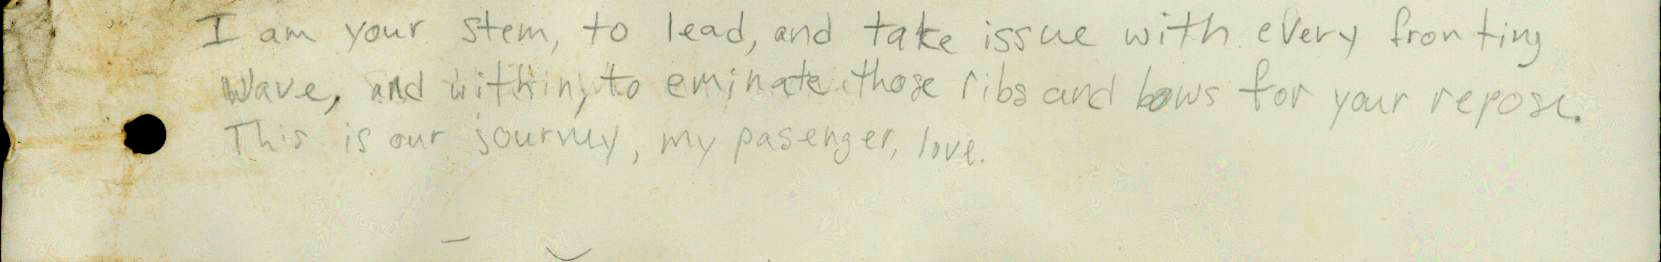 I am your stem, to lead, and take issue with every fronting
wave, and within, to eminate those ribs and bows for your repose.
This is our journey, my pasenger, love.